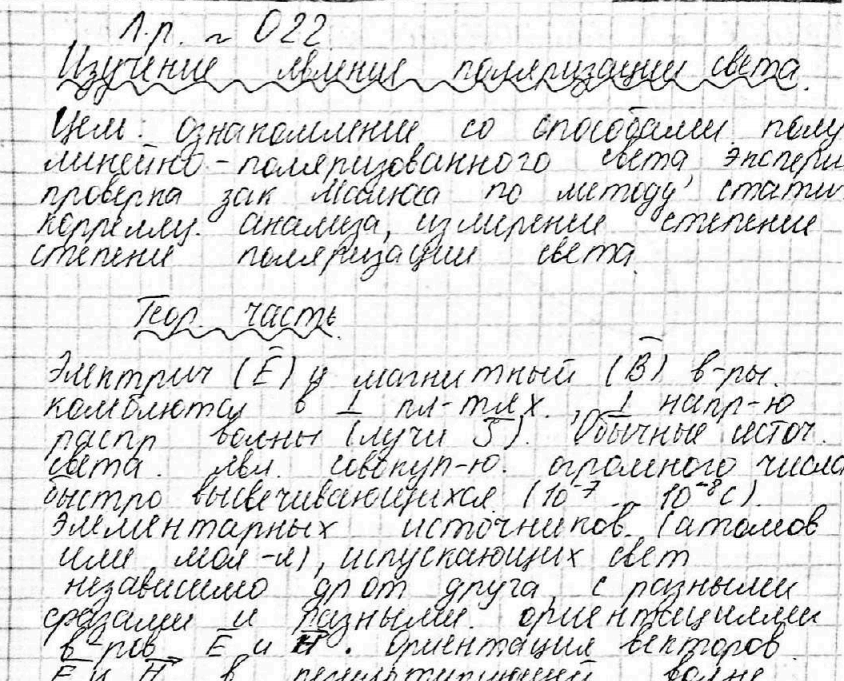 Л.р. ~ 022
Изучение явления поляризации света.
Цель: ознакомление со способами полу
линейно-поляризованного света экспери
проверка зак Малюса по методу статис
коррелляц. анализа, измерение степение
степени поляризации света
Теор. часть.
Электрич (E̅) и магнитный (B̅) в-ры.
колеблются в ⊥ пл-тях., ⊥ напр-ю
распр волны (лучи S̅). Обычные источ.
света. явл. совокуп-ю. огромного числа
быстро высвечивающихся (10⁻⁷ .. 10⁻⁸ с)
элементарных источников (атомов
или мол-л), испускающих свет
независимо др от друга, с разными
фазами и разными. ориентациями
в-ров E̅ и H̅. Ориентация векторов
E̅ и H̅ в результирующей волне